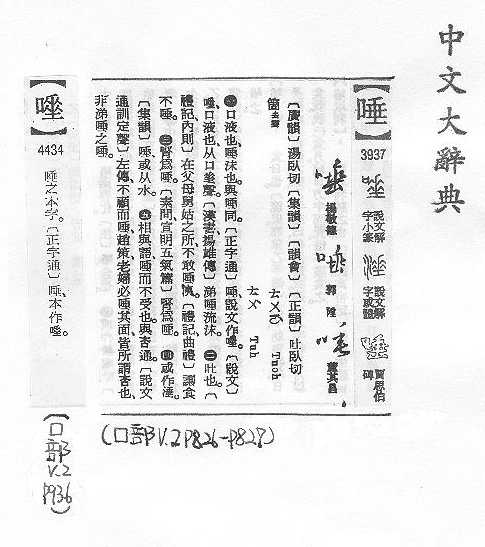 中文大辭典
【唾】
3937
說文解
字小篆
說文解
字或體
賈思伯
碑
楊敬龍
郭陞
董其昌
〔廣韻〕湯臥切〔集韻〕〔韻會〕〔正韻〕吐臥切
箇去聲
ㄊㄨㄛ Tuoh
ㄊㄨ Tuh
㊀口液也、唾沫也。與唾同。〔正字通〕唾、說文作㙮。〔說文〕
唾、口液也、从口㙮聲。〔漢書揚雄傳〕涕唾流沫。㊁吐也。〔
禮記內則〕在父母舅姑之所不敢唾洟。〔禮記曲禮〕讓食
不唾。㊂腎為唾。〔素問宣明五氣篇〕腎為唾。㊃或作涶。
〔集韻〕唾或从水。㊄相與語唾而不受也。與咅通。〔說文
通訓定聲〕左傳不顧而唾、趙策老婦必唾其面皆所謂咅也、
非涕唾之唾。
4434
唾之本字。〔正字通〕唾、本作㙮。
(口部V.2 P826-P827)
(口部V.2 P936)